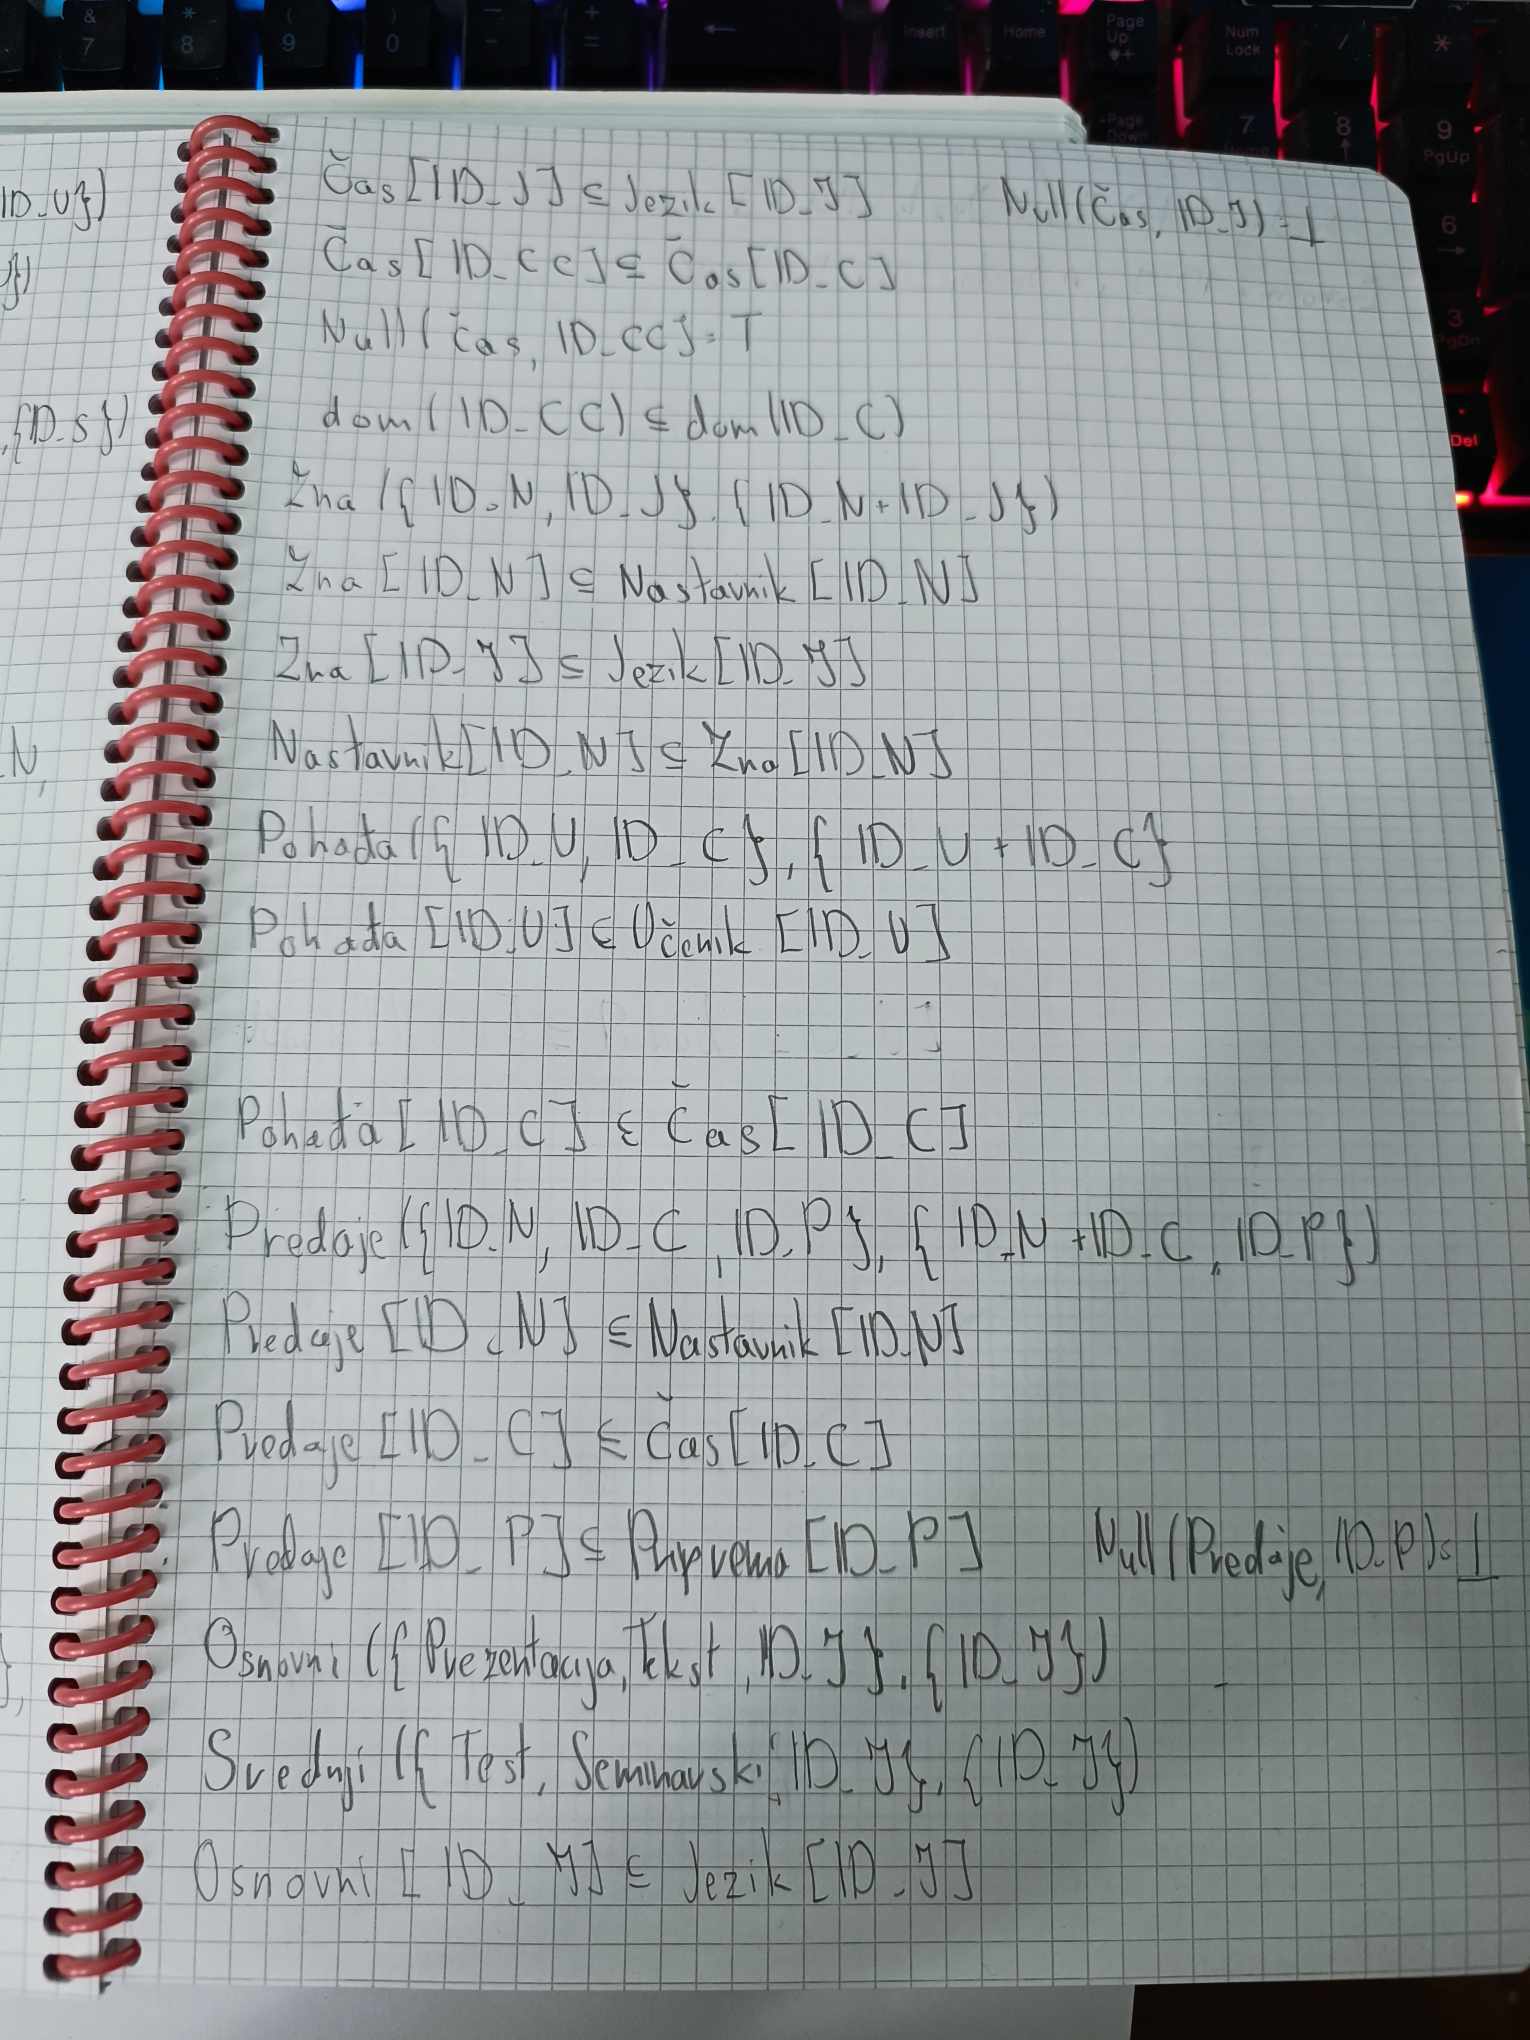 & 7
* 8
( 9
) 0
Insert
Home
Page Up
Num Lock
/
*
Page Down
7
8
9 PgUp
6
3
Del
ID_U})
})
,{ID_S})
N,
},
Čas [ID_J] ⊆ Jezik [ID_J] Null(Čas, ID_J) = ⊥
Čas [ID_CC] ⊆ Čas [ID_C]
Null(Čas, ID_CC] = T
dom(ID_CC) ⊆ dom(ID_C)
Zna ({ID_N, ID_J}, {ID_N+ID_J})
Zna [ID_N] ⊆ Nastavnik [ID_N]
Zna [ID_J] ⊆ Jezik [ID_J]
Nastavnik [ID_N] ⊆ Zna [ID_N]
Pohađa ({ID_U, ID_C}, {ID_U + ID_C}
Pohađa [ID_U] ⊆ Učenik [ID_U]
Pohađa [ID_C] ⊆ Čas [ID_C]
Predaje ({ID_N, ID_C, ID_P}, {ID_N +ID_C, ID_P})
Predaje [ID_N] ⊆ Nastavnik [ID_N]
Predaje [ID_C] ⊆ Čas [ID_C]
Predaje [ID_P] ⊆ Priprema [ID_P] Null(Predaje, ID_P) = ⊥
Osnovni ({Prezentacija, Tekst, ID_J}, {ID_J})
Srednji ({Test, Seminarski, ID_J}, {ID_J})
Osnovni [ID_J] ⊆ Jezik [ID_J]